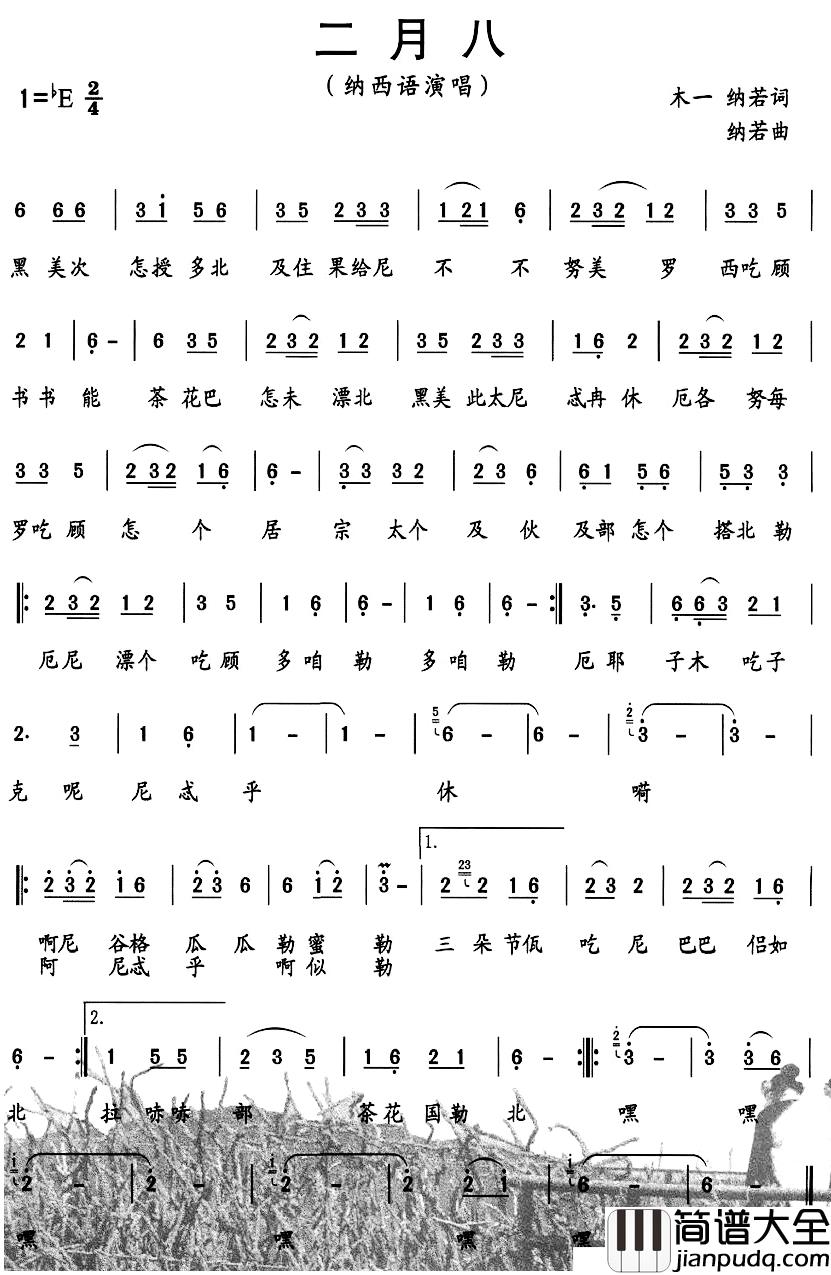 二月八
（纳西语演唱）
1=♭E 2/4
木一 纳若词
纳若曲
6 6 6 | 3 1 5 6 | 3 5 2 3 3 | 1 2 1 6 | 2 3 2 1 2 | 3 3 5 |
黑 美次 怎授 多北 及住 果给尼 不 不 努美 罗 西吃 顾
2 1 | 6 - | 6 3 5 | 2 3 2 1 2 | 3 5 2 3 3 | 1 6 2 | 2 3 2 1 2 |
书 书 能 茶 花巴 怎未 漂北 黑美 此太尼 忒冉 休 厄各 努每
3 3 5 | 2 3 2 1 6 | 6 - | 3 3 3 2 | 2 3 6 | 6 1 5 6 | 5 3 3 |
罗吃 顾 怎 个 居 宗 太个 及 伙 及部 怎个 搭北 勒
2 3 2 1 2 | 3 5 | 1 6 | 6 - | 1 6 | 6 - :| 3. 5 | 6 6 3 2 1 |
厄尼 漂个 吃 顾 多 咱 勒 多 咱 勒 厄 耶 子木 吃子
2. 3 | 1 6 | 1 - | 1 - | 5 6 - | 6 - | 2 3 - | 3 - |
克 呢 尼 忒 乎 休 嗬
1.
2 3 2 1 6 | 2 3 6 | 6 1 2 | 3 - | 2 23 2 1 6 | 2 3 2 | 2 3 2 1 6 |
啊尼 谷格 瓜 瓜 勒 蜜 勒 三 朵 节佤 吃 尼 巴巴 侣如
阿 尼忒 乎 啊 似 勒
2.
6 - :| 1 5 5 | 2 3 5 | 1 6 2 1 | 6 - :| 2 3 - | 3 3 6 |
北 拉 哧哧 部 茶花 国勒 北 嘿 嘿
1 2 - | 2 - | 1 2 - | 2 2 1 | 1 6 - | 6 - |
嘿 嘿 嘿 嘿
简谱大全
jianpudq.com